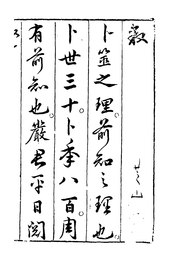 卜筮之理前知之理也
卜世三十卜秊八百周
有前知也嚴君平日閱